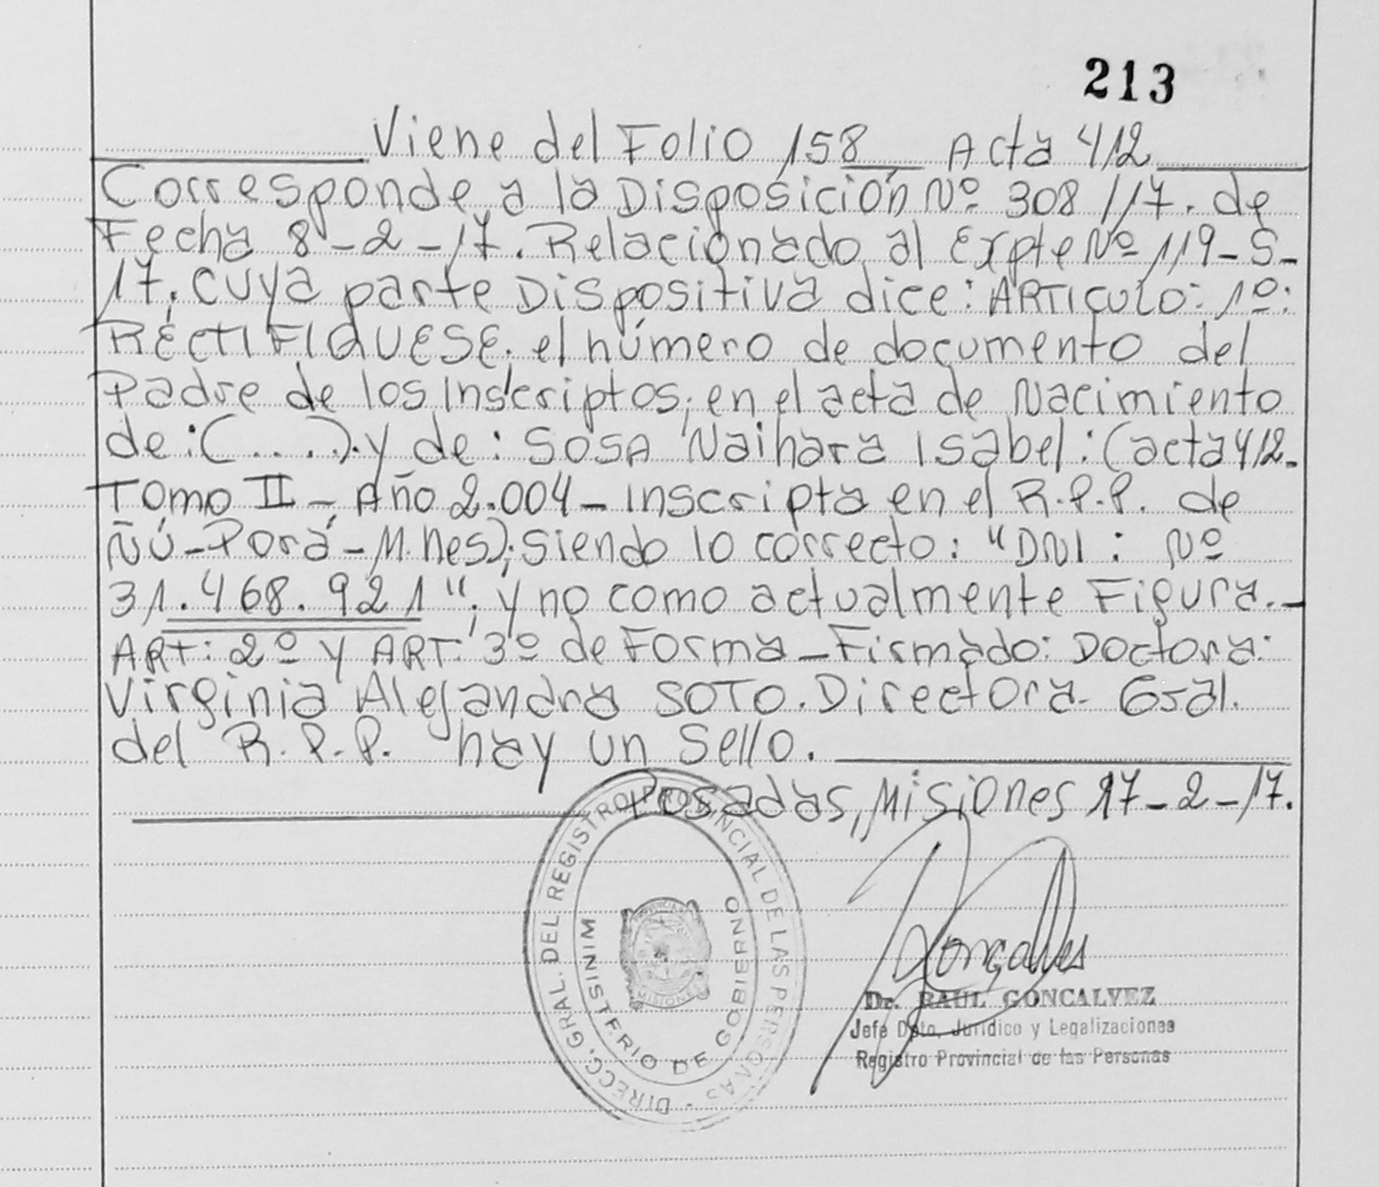 213
Viene del Folio 158 Acta 412
Corresponde a la Disposición Nº 308/17. de
Fecha 8-2-17. Relacionado al Expte Nº 119-S-
17. cuya parte Dispositiva dice: ARTICULO: 1º:
RECTIFIQUESE. el número de documento del
Padre de los Inscriptos, en el acta de Nacimiento
de: (....). y de: SOSA Naihara Isabel: (acta 412.
Tomo II - Año 2.004 - Inscripta en el R.P.P. de
Ñú-Porá-M.nes); siendo lo correcto: "DNI: Nº
31.468.921"; y no como actualmente Figura.-
ART: 2º y ART: 3º de Forma - Firmado: Doctora:
Virginia Alejandra SOTO. Directora Gral.
del R.P.P. hay un Sello.
Posadas, Misiones 17-2-17.
DIRECC. GRAL. DEL REGISTRO PROVINCIAL DE LAS PERSONAS -
MINISTERIO DE GOBIERNO
MISIONES
Goncalves
Dr. RAUL GONCALVEZ
Jefe Dpto. Jurídico y Legalizaciones
Registro Provincial de las Personas